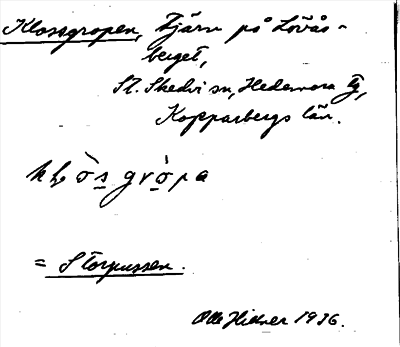 Klossgropen, Tjärn på Lövås-
berget,
St. Skedvi sn, Hedemora tg,
Kopparbergs län.
= Storpussen.
Olle Hillner 1936.